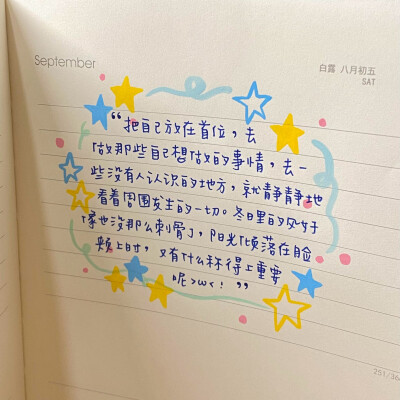 September
白露 八月初五
SAT
“把自己放在首位，去
做那些自己想做的事情，去一
些没有人认识的地方，就静静地
看着周围发生的一切。冬日里的风好
像也没那么刺骨了，阳光倾落在脸
颊上时，又有什么称得上重要
呢>w<！”